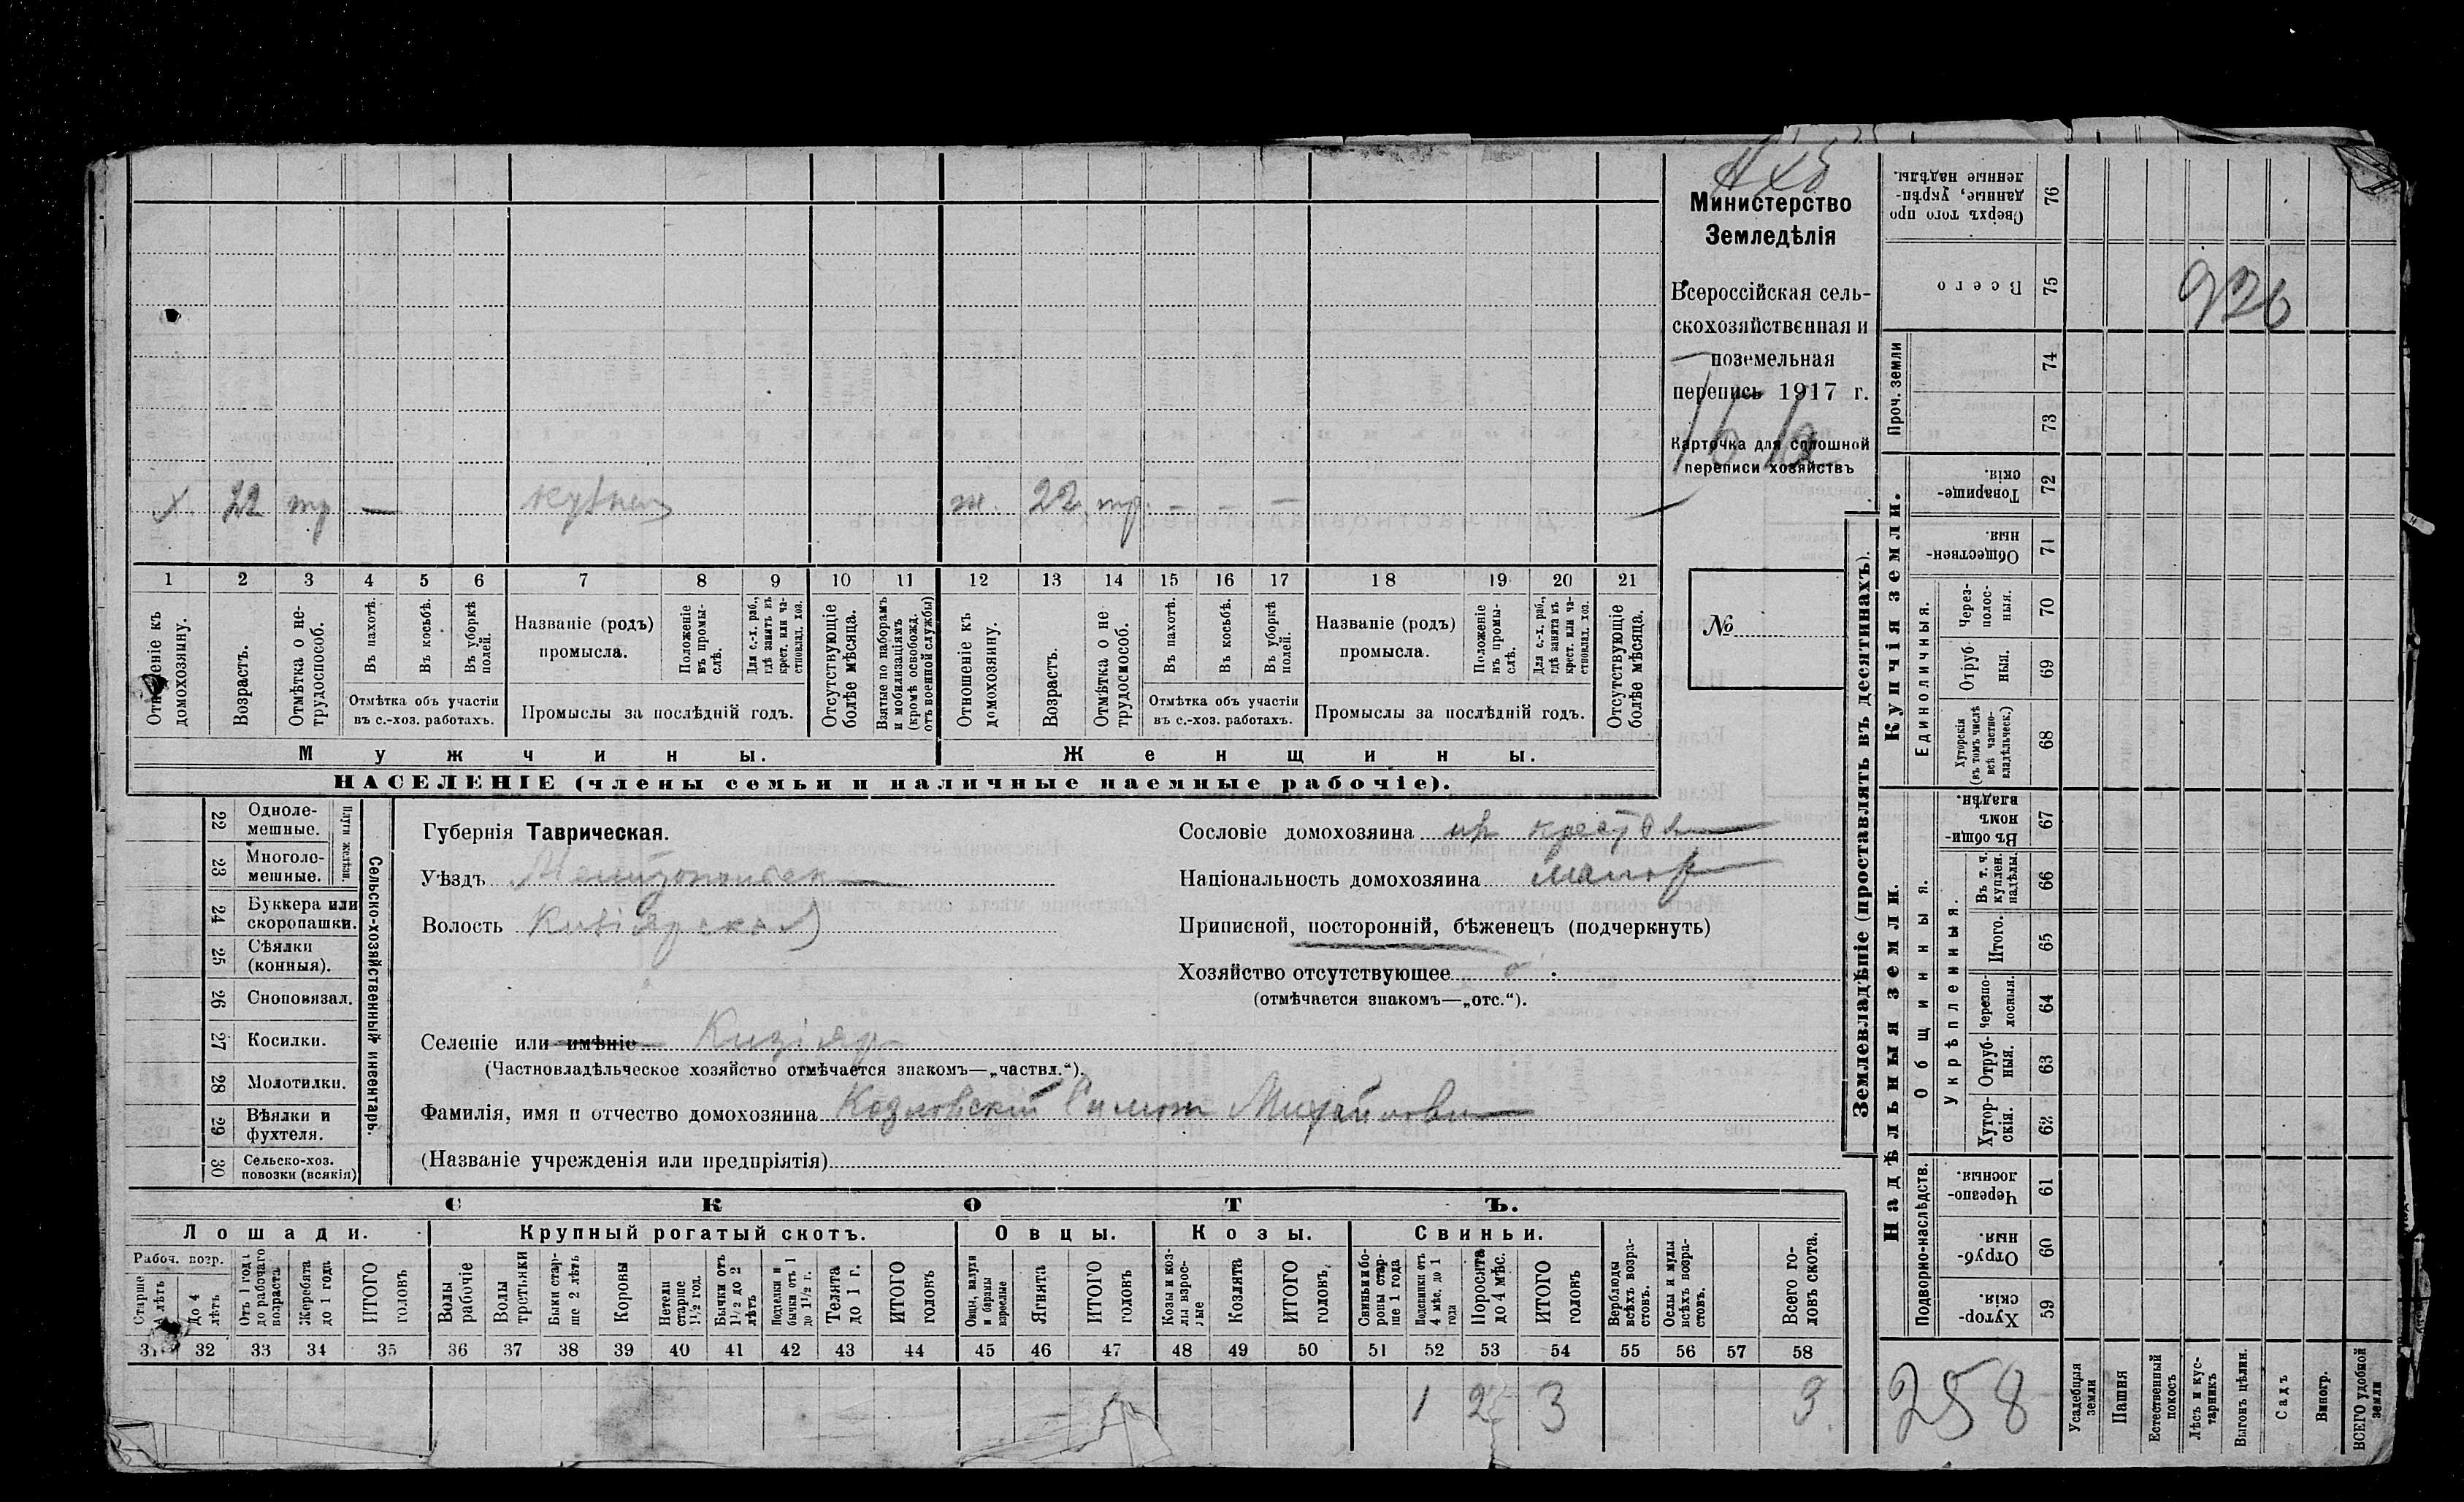 Министерство
Земледѣлія
Всероссійская сель-
скохозяйственная и
поземельная
перепись 1917 г.
Карточка для сплошной
переписи хозяйствъ
№
х 22 тр — кузнец ж. 22 тр. - - -
1 2 3 4 5 6 7 8 9 10 11 12 13 14 15 16 17 18 19 20 21
Отношеніе къ домохозяину.
Возрастъ.
Отмѣтка о не-трудоспособ.
Въ пахотѣ.
Въ косьбѣ.
Въ уборкѣ полей.
Отмѣтка объ участіи
въ с.-хоз. работахъ.
Названіе (родъ)
промысла.
Положеніе въ промы-слѣ.
Для с.-х. раб., гдѣ занятъ въ крест. или ча-стновлад. хоз.
Промыслы за послѣдній годъ.
Отсутствующіе болѣе мѣсяца.
Взятые по наборамъ и мобилизаціямъ (кромѣ освобожд. отъ военной службы)
Отношеніе къ домохозяину.
Возрастъ.
Отмѣтка о не трудоспособ.
Въ пахотѣ.
Въ косьбѣ.
Въ уборкѣ полей.
Отмѣтка объ участіи
въ с.-хоз. работахъ.
Названіе (родъ)
промысла.
Положеніе въ промы-слѣ.
Для с.-х. раб., гдѣ занята въ крест. или ча-стновлад. хоз.
Промыслы за послѣдній годъ.
Отсутствующіе болѣе мѣсяца.
Мужчины.
Женщины.
НАСЕЛЕНІЕ (члены семьи и наличные наемные рабочіе).
22 Одноле-мешные.
23 Многоле-мешные.
Плуги желѣзн.
24 Буккера или скоропашки.
25 Сѣялки (конныя).
26 Сноповязал.
27 Косилки.
28 Молотилки.
29 Вѣялки и фухтеля.
30 Сельско-хоз. повозки (всякія)
Сельско-хозяйственный инвентарь.
Губернія Таврическая.
Уѣздъ Мелитопольск
Волость Кизіярская
Селеніе или имѣніе Кизіяр
(Частновладѣльческое хозяйство отмѣчается знакомъ—„частвл.“).
Фамилія, имя и отчество домохозяина Козловскій Михайлови
(Названіе учрежденія или предпріятія)
Сословіе домохозяина крестян
Національность домохозяина малор
Приписной, посторонній, бѣженецъ (подчеркнуть)
Хозяйство отсутствующее
(отмѣчается знакомъ—„отс.“).
СКОТЪ.
Лошади.
Крупный рогатый скотъ.
Овцы.
Козы.
Свиньи.
Рабоч. возр.
Старше 4 лѣтъ
До 4 лѣтъ
Отъ 1 года до рабочаго возраста
Жеребята до 1 года
ИТОГО головъ
Волы рабочіе
Волы третьяки
Быки стар-ше 2 лѣтъ
Коровы
Нетели старше 1½ год.
Бычки отъ 1½ до 2 лѣтъ
Подтелки и бычки отъ 1 до 1½ г.
Телята до 1 г.
ИТОГО головъ
Овцы, валухи и бараны взрослые
Ягнята
ИТОГО головъ
Козы и коз-лы взрос-лые
Козлята
ИТОГО головъ
Свиньи и бо-ровы стар-ше 1 года
Подсвинки отъ 4 мѣс. до 1 года
Поросята до 4 мѣс.
ИТОГО головъ
Верблюды всѣхъ возра-стовъ.
Ослы и мулы всѣхъ возра-стовъ.
Всего го-ловъ скота.
31 32 33 34 35 36 37 38 39 40 41 42 43 44 45 46 47 48 49 50 51 52 53 54 55 56 57 58
1 2 3 3
Землевладѣніе (проставлять въ десятинахъ).
Купчія земли.
Надѣльныя земли.
Сверхъ того про данные, укрѣп-ленные надѣлы. 76
Всего 75
936
Проч. земли
74
73
Товарище-скія. 72
Обществен-ныя. 71
Единоличныя.
Через-полос-ныя. 70
Отруб-ныя. 69
Хуторскія (въ томъ числѣ всѣ частно-владѣльческ.) 68
Общинныя.
Въ общи-номъ владѣн. 67
Укрѣпленныя.
Въ т. ч. куплен. надѣлы. 66
Итого. 65
Черезпо-лосныя. 64
Отруб-ныя. 63
Хутор-скія. 62
Подворно-наслѣдств.
Черезпо-лосныя 61
Отруб-ныя. 60
Хутор-скія. 59
258
Усадебныя земли
Пашня
Естественный покосъ
Лѣсъ и кус-тарникъ
Выгонъ цѣлин.
Садъ
Виногр.
ВСЕГО удобной земли